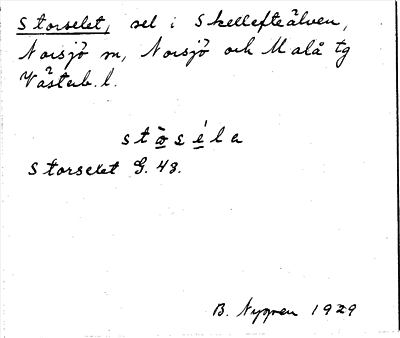 Storselet, sel i Skellefteälven,
Norsjö sn, Norsjö och Malå tg
Västerb. l.
stòsé la
Storselet G. 43.
B. Nygren 1929